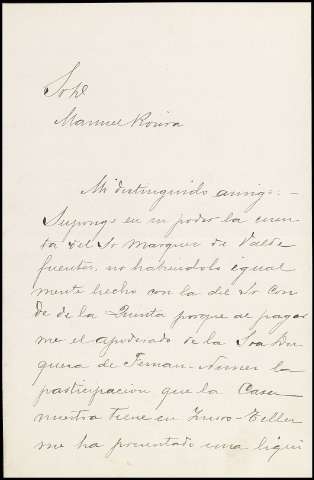 Sr D.
Manuel Rovira
Mi distinguido amigo: -
Supongo en su poder la cuen
ta del Sr Marques de Valde
fuentes, no habiendolo igual
mente hecho con la del Sr Con
de de la Quinta porque al pagar
me el apoderado de la Sra Du
quesa de Fernan-Nuñez la
participacion que la Casa
nuestra tiene en
me ha presentado una liqui